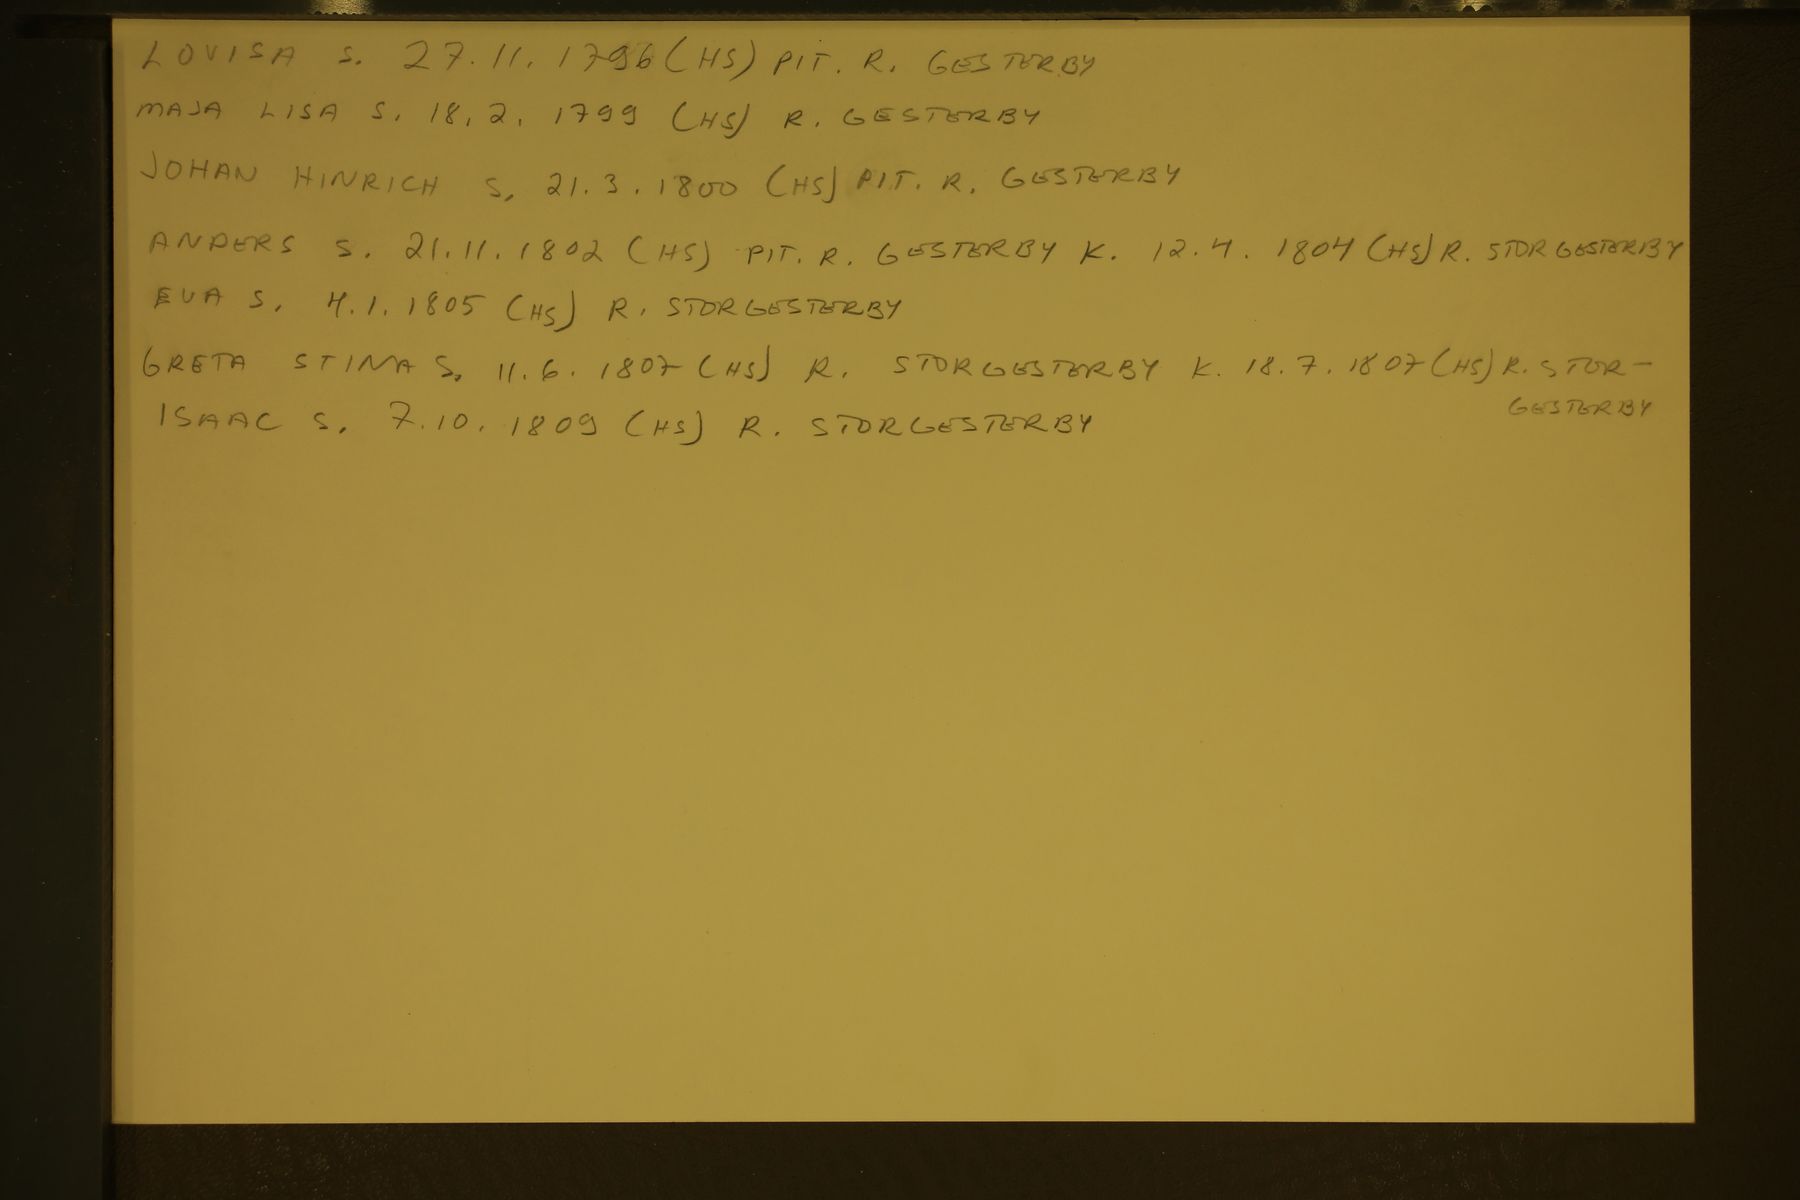 LOVISA S. 27.11.1796 (HS) PIT. R. GESTERBY
MAJA LISA S. 18.2.1799 (HS) R. GESTERBY
JOHAN HINRICH S. 21.3.1800 (HS) PIT. R. GESTERBY
ANDERS S. 21.11.1802 (HS) PIT. R. GESTERBY K. 12.4.1804 (HS) R. STORGESTERBY
EVA S. 4.1.1805 (HS) R. STORGESTERBY
GRETA STINA S. 11.6.1807 (HS) R. STORGESTERBY K. 18.7.1807 (HS) R. STOR-
GESTERBY
ISAAC S. 7.10.1809 (HS) R. STORGESTERBY